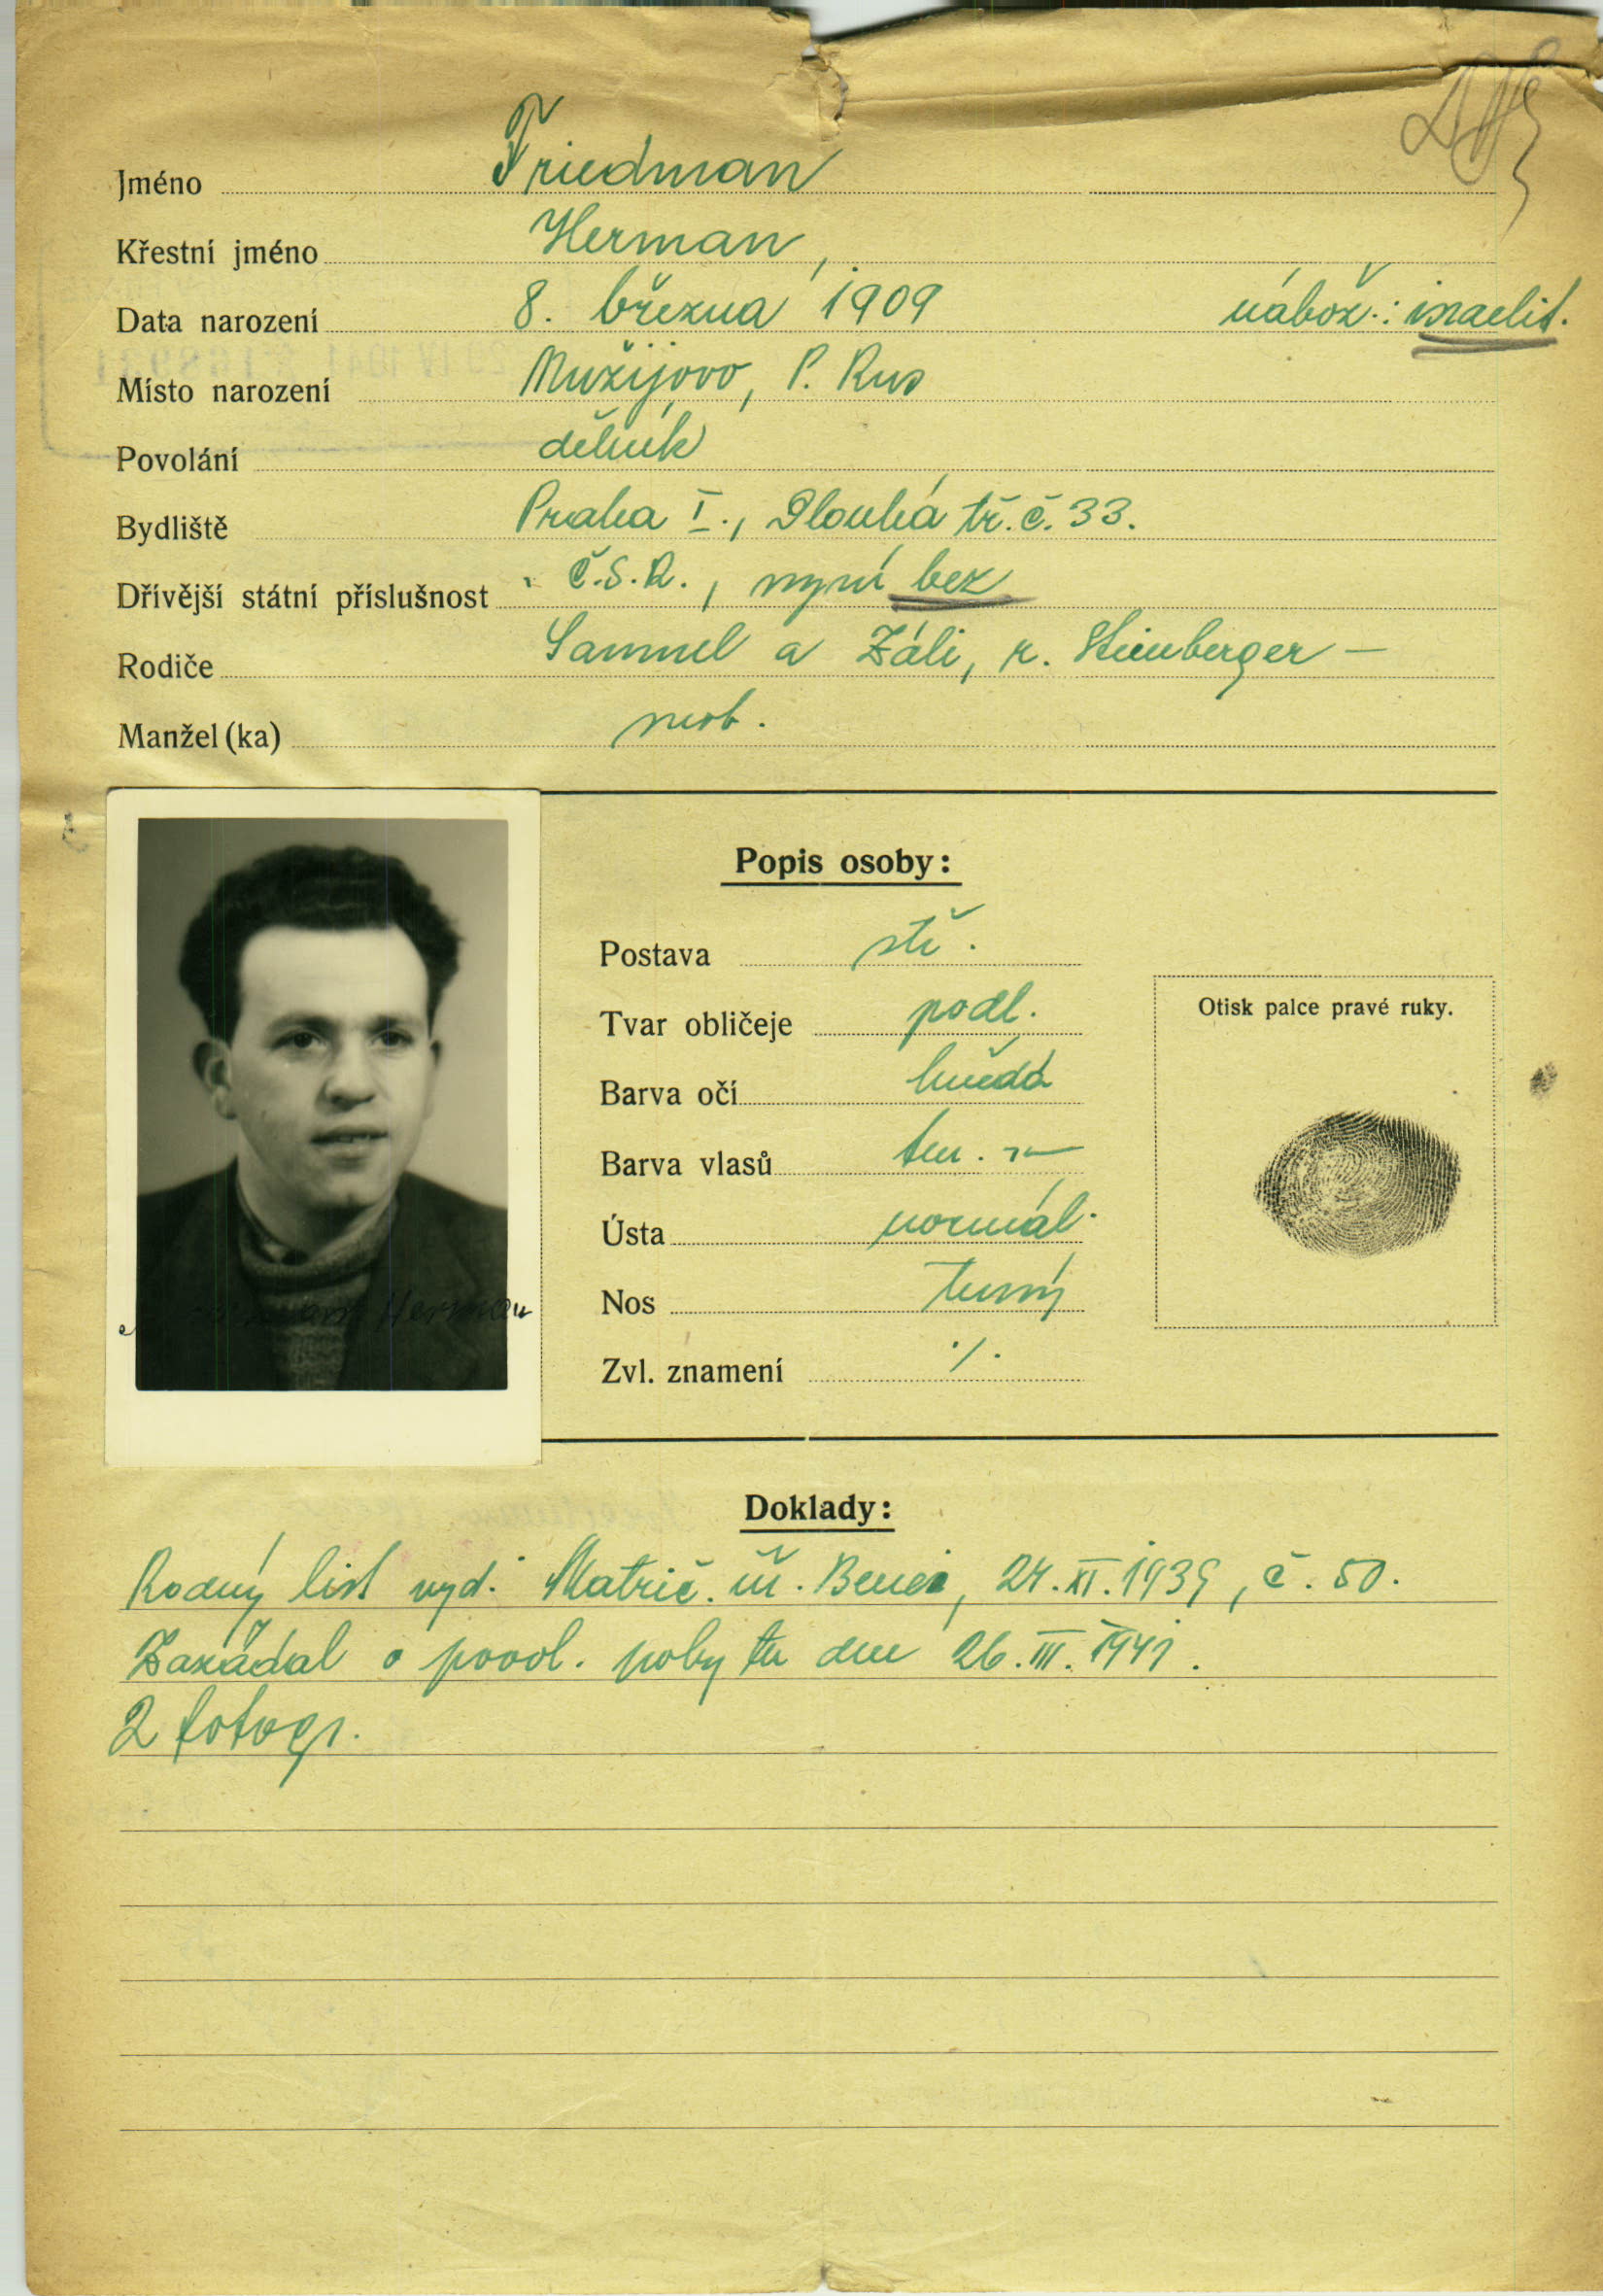 Jméno Friedman
Křestní jméno Herman,
Data narození 8. března 1909 nábož.: israelit.
Místo narození Mužijovo, P. Rus
Povolání dělník
Bydliště Praha I., Dlouhá tř. č. 33.
Dřívější státní příslušnost Č.S.R., nyní bez
Rodiče Samuel a Záli, r. Steinberger —
Manžel(ka) svob.
Popis osoby:
Postava stř.
Tvar obličeje podl.
Barva očí hnědá
Barva vlasů tm.
Ústa normál.
Nos
Zvl. znamení ./.
Otisk palce pravé ruky.
Herman
Doklady:
Rodný list vyd. Matrič. úř. Bene, 24. XI. 1939, č. 50.
Zažádal o povol. pobytu dne 26. III. 1941.
2 fotogr.